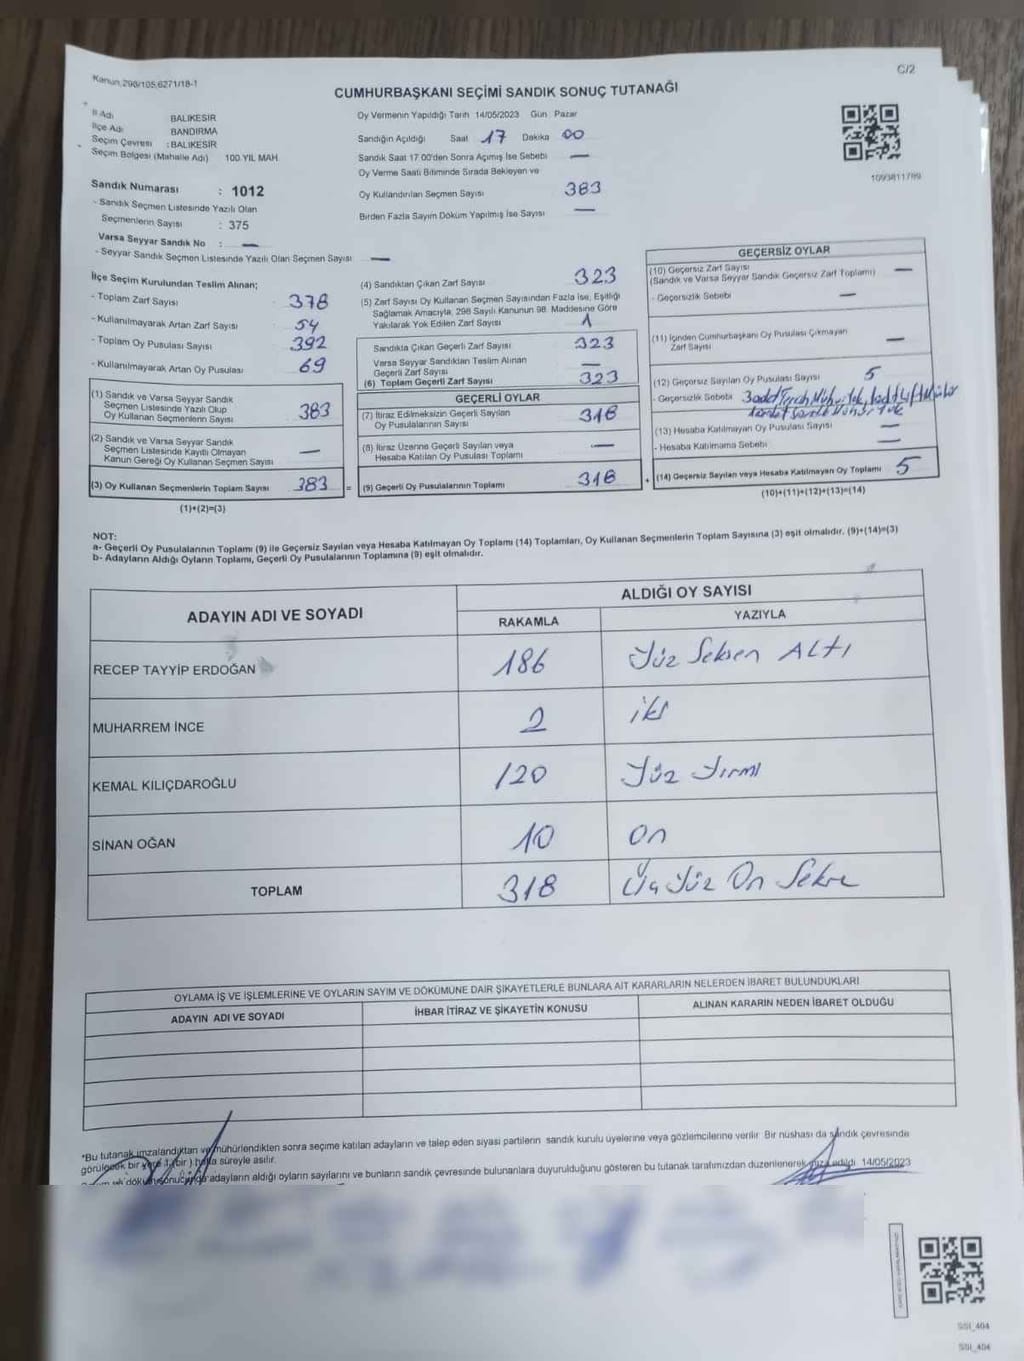 Kanun 298/105,6271/18-1
C/2
CUMHURBAŞKANI SEÇİMİ SANDIK SONUÇ TUTANAĞI
İl Adı BALIKESİR
İlçe Adı BANDIRMA
Seçim Çevresi : BALIKESİR
Seçim Bölgesi (Mahalle Adı) 100.YIL MAH.
Sandık Numarası : 1012
- Sandık Seçmen Listesinde Yazılı Olan
Seçmenlerin Sayısı : 375
Varsa Seyyar Sandık No : —
- Seyyar Sandık Seçmen Listesinde Yazılı Olan Seçmen Sayısı —
Oy Vermenin Yapıldığı Tarih 14/05/2023 Gün Pazar
Sandığın Açıldığı Saat 17 Dakika 00
Sandık Saat 17.00'den Sonra Açımış İse Sebebi —
Oy Verme Saati Bitiminde Sırada Bekleyen ve
Oy Kullandırılan Seçmen Sayısı 383
Birden Fazla Sayım Döküm Yapılmış İse Sayısı —
1093811789
İlçe Seçim Kurulundan Teslim Alınan;
- Toplam Zarf Sayısı 378
- Kullanılmayarak Artan Zarf Sayısı 54
- Toplam Oy Pusulası Sayısı 392
- Kullanılmayarak Artan Oy Pusulası 69
(1) Sandık ve Varsa Seyyar Sandık
Seçmen Listesinde Yazılı Olup
Oy Kullanan Seçmenlerin Sayısı 383
(2) Sandık ve Varsa Seyyar Sandık
Seçmen Listesinde Kayıtlı Olmayan
Kanun Gereği Oy Kullanan Seçmen Sayısı —
(3) Oy Kullanan Seçmenlerin Toplam Sayısı 383 =
(1)+(2)=(3)
(4) Sandıktan Çıkan Zarf Sayısı 323
(5) Zarf Sayısı Oy Kullanan Seçmen Sayısından Fazla İse, Eşitliği
Sağlamak Amacıyla, 298 Sayılı Kanunun 98. Maddesine Göre
Yakılarak Yok Edilen Zarf Sayısı 1
Sandıkta Çıkan Geçerli Zarf Sayısı 323
Varsa Seyyar Sandıktan Teslim Alınan
Geçerli Zarf Sayısı —
(6) Toplam Geçerli Zarf Sayısı 323
GEÇERLİ OYLAR
(7) İtiraz Edilmeksizin Geçerli Sayılan
Oy Pusulalarının Sayısı 318
(8) İtiraz Üzerine Geçerli Sayılan veya
Hesaba Katılan Oy Pusulası Toplamı —
(9) Geçerli Oy Pusulalarının Toplamı 318 +
GEÇERSİZ OYLAR
(10) Geçersiz Zarf Sayısı
(Sandık ve Varsa Seyyar Sandık Geçersiz Zarf Toplamı) —
- Geçersizlik Sebebi —
(11) İçinden Cumhurbaşkanı Oy Pusulası Çıkmayan
Zarf Sayısı —
(12) Geçersiz Sayılan Oy Pusulası Sayısı 5
- Geçersizlik Sebebi 3 adet
(13) Hesaba Katılmayan Oy Pusulası Sayısı —
- Hesaba Katılmama Sebebi —
(14) Geçersiz Sayılan veya Hesaba Katılmayan Oy Toplamı 5
(10)+(11)+(12)+(13)=(14)
NOT:
a- Geçerli Oy Pusulalarının Toplamı (9) ile Geçersiz Sayılan veya Hesaba Katılmayan Oy Toplamı (14) Toplamları, Oy Kullanan Seçmenlerin Toplam Sayısına (3) eşit olmalıdır. (9)+(14)=(3)
b- Adayların Aldığı Oyların Toplamı, Geçerli Oy Pusulalarının Toplamına (9) eşit olmalıdır.
ADAYIN ADI VE SOYADI
ALDIĞI OY SAYISI
RAKAMLA YAZIYLA
RECEP TAYYİP ERDOĞAN 186 Yüz Seksen ALtı
MUHARREM İNCE 2 iki
KEMAL KILIÇDAROĞLU 120 Yüz Yirmi
SİNAN OĞAN 10 On
TOPLAM 318 Üç Yüz On Sekiz
OYLAMA İŞ VE İŞLEMLERİNE VE OYLARIN SAYIM VE DÖKÜMÜNE DAİR ŞİKAYETLERLE BUNLARA AİT KARARLARIN NELERDEN İBARET BULUNDUKLARI
ADAYIN ADI VE SOYADI İHBAR İTİRAZ VE ŞİKAYETİN KONUSU ALINAN KARARIN NEDEN İBARET OLDUĞU
*Bu tutanak imzalandıktan ve mühürlendikten sonra seçime katılan adayların ve talep eden siyasi partilerin sandık kurulu üyelerine veya gözlemcilerine verilir. Bir nüshası da sandık çevresinde
görülecek bir yere 1 (bir) hafta süreyle asılır.
sonucunda adayların aldığı oyların sayılarını ve bunların sandık çevresinde bulunanlara duyurulduğunu gösteren bu tutanak tarafımızdan düzenlenerek imza edildi. 14/05/2023
SSI_404
SSI_404